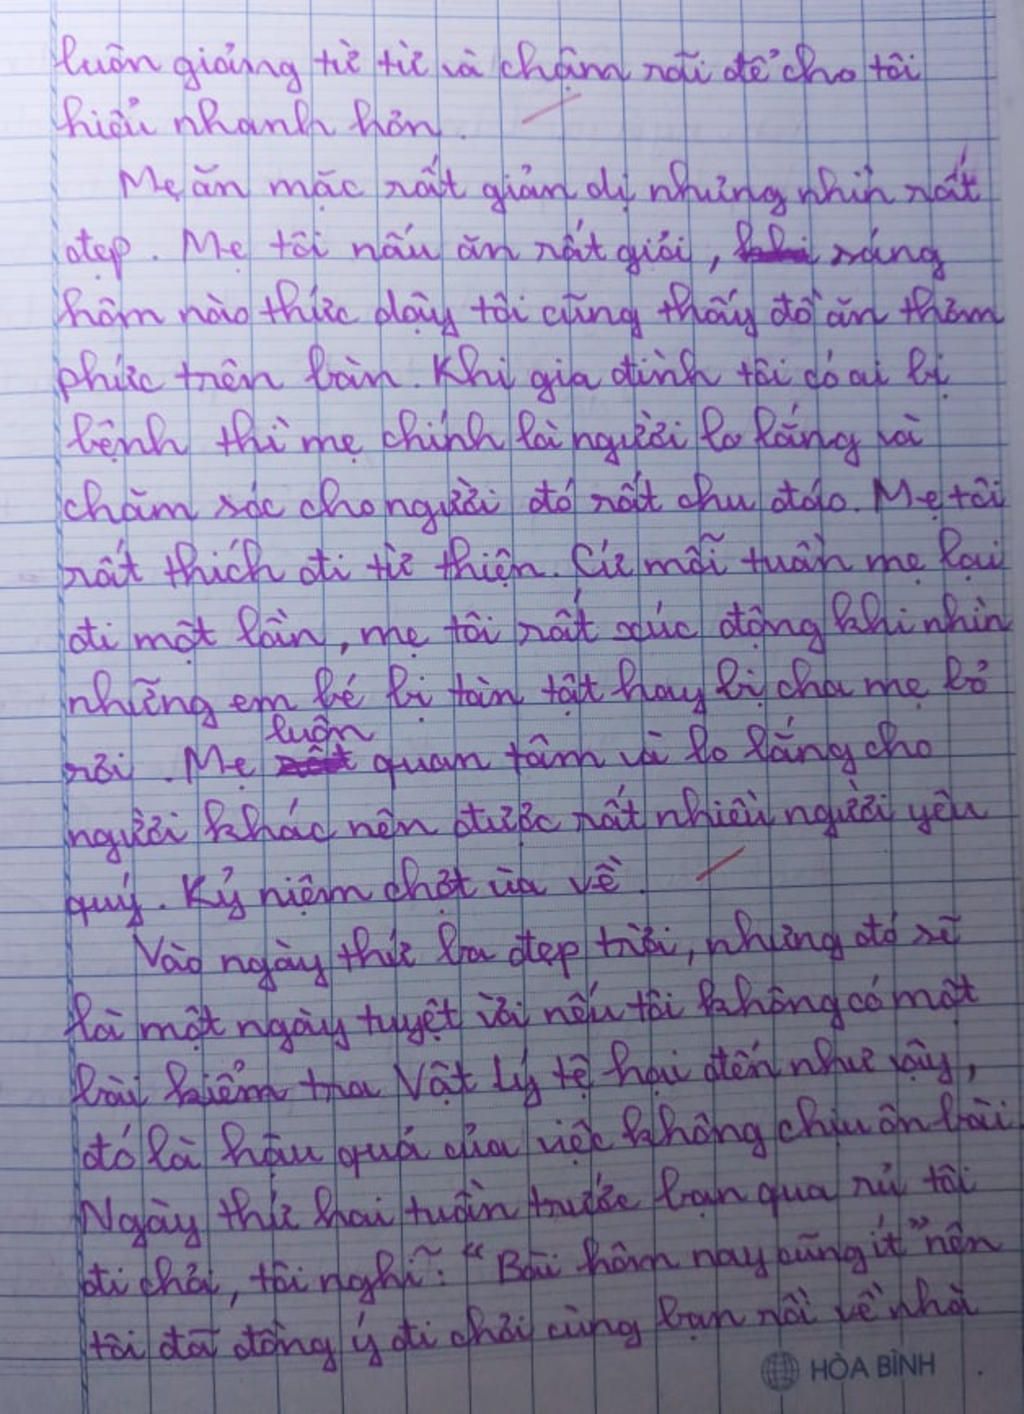 luôn giảng từ từ và chậm rãi để cho tôi
hiểu nhanh hơn.
Mẹ ăn mặc rất giản dị nhưng nhìn rất
đẹp. Mẹ tôi nấu ăn rất giỏi, sáng
hôm nào thức dậy tôi cũng thấy đồ ăn thơm
phức trên bàn. Khi gia đình tôi có ai bị
bệnh thì mẹ chính là người lo lắng và
chăm sóc cho người đó rất chu đáo. Mẹ tôi
rất thích đi từ thiện. Cứ mỗi tuần mẹ lại
đi một lần, mẹ tôi rất xúc động khi nhìn
những em bé bị tàn tật hay bị cha mẹ bỏ
rơi. Mẹ luôn quan tâm và lo lắng cho
người khác nên được rất nhiều người yêu
quý. Kỷ niệm chợt ùa về.
Vào ngày thứ ba đẹp trời, nhưng đó sẽ
là một ngày tuyệt vời nếu tôi không có một
bài kiểm tra Vật Lý tệ hại đến như vậy,
đó là hậu quả của việc không chịu ôn bài
Ngày thứ hai tuần trước bạn qua rủ tôi
đi chơi, tôi nghĩ: "Bài hôm nay cũng ít" nên
tôi đã đồng ý đi chơi cùng bạn rồi về nhà
HÒA BÌNH